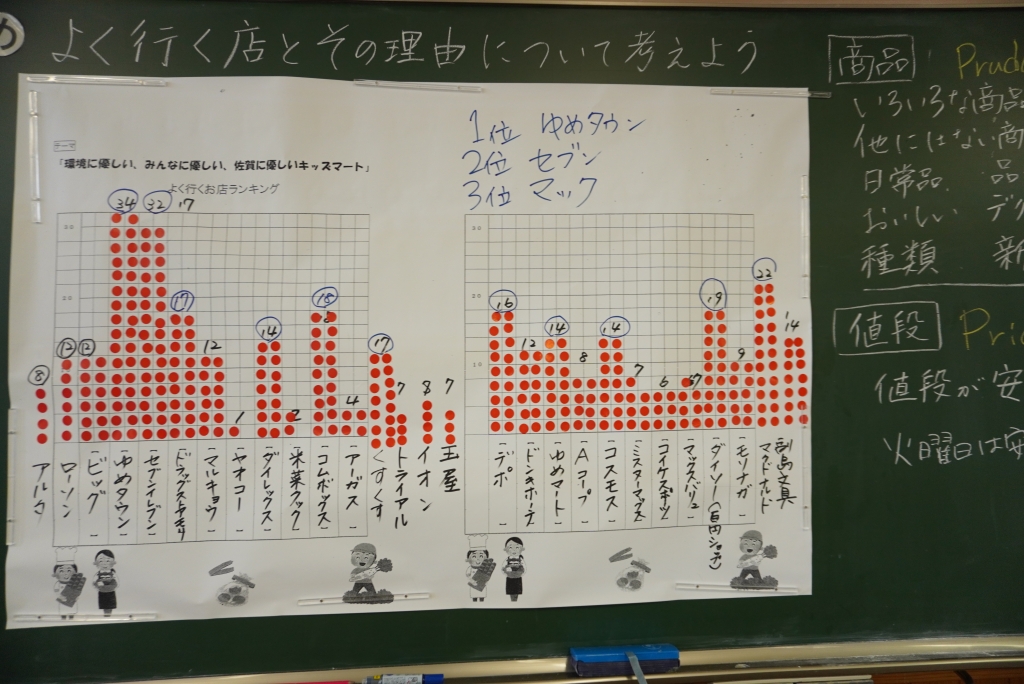 よく行く店とその理由について考えよう
テーマ
「環境に優しい、みんなに優しい、佐賀に優しいキッズマート」
よく行くお店ランキング
1位 ゆめタウン
2位 セブン
3位 マック
34
32
17
17
12
12
8
12
1
14
2
18
4
17
7
8
7
30
20
アルタ
ローソン
ビッグ
ゆめタウン
セブンイレブン
ドラッグストアモリ
マルキョウ
ヤオコー
ダイレックス
コムボックス
アーガス
くすくす
トライアル
イオン
玉屋
30
20
10
16
12
14
8
14
7
6
7
19
9
22
14
デポ
ドンキホーテ
ゆめマート
Aコープ
コスモス
ミスターマックス
コイケスポーツ
マックスバリュ
ダイソー(百円ショップ)
モリナガ
マクドナルド
副島文具
商品
いろいろな商品
他にはない商
日常品 品
おいしい デ
種類 新
値段
値段が安
火曜日は安